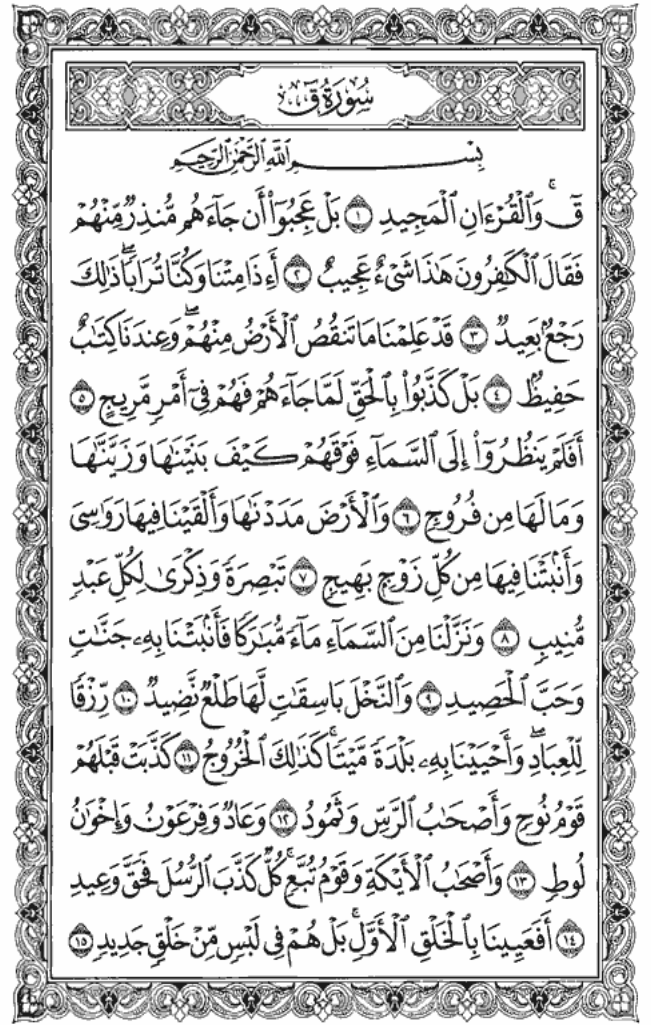 سُورَةُ قٓ
بِسْمِ ٱللَّهِ ٱلرَّحْمَٰنِ ٱلرَّحِيمِ
قٓۚ وَٱلْقُرْءَانِ ٱلْمَجِيدِ ١ بَلْ عَجِبُوٓا۟ أَن جَآءَهُم مُّنذِرٌ مِّنْهُمْ
فَقَالَ ٱلْكَٰفِرُونَ هَٰذَا شَىْءٌ عَجِيبٌ ٢ أَءِذَا مِتْنَا وَكُنَّا تُرَابًاۖ ذَٰلِكَ
رَجْعٌۢ بَعِيدٌ ٣ قَدْ عَلِمْنَا مَا تَنقُصُ ٱلْأَرْضُ مِنْهُمْۖ وَعِندَنَا كِتَٰبٌ
حَفِيظٌۢ ٤ بَلْ كَذَّبُوا۟ بِٱلْحَقِّ لَمَّا جَآءَهُمْ فَهُمْ فِىٓ أَمْرٍ مَّرِيجٍ ٥
أَفَلَمْ يَنظُرُوٓا۟ إِلَى ٱلسَّمَآءِ فَوْقَهُمْ كَيْفَ بَنَيْنَٰهَا وَزَيَّنَّٰهَا
وَمَا لَهَا مِن فُرُوجٍ ٦ وَٱلْأَرْضَ مَدَدْنَٰهَا وَأَلْقَيْنَا فِيهَا رَوَٰسِىَ
وَأَنۢبَتْنَا فِيهَا مِن كُلِّ زَوْجٍۭ بَهِيجٍ ٧ تَبْصِرَةً وَذِكْرَىٰ لِكُلِّ عَبْدٍ
مُّنِيبٍ ٨ وَنَزَّلْنَا مِنَ ٱلسَّمَآءِ مَآءً مُّبَٰرَكًا فَأَنۢبَتْنَا بِهِۦ جَنَّٰتٍ
وَحَبَّ ٱلْحَصِيدِ ٩ وَٱلنَّخْلَ بَاسِقَٰتٍ لَّهَا طَلْعٌ نَّضِيدٌ ١٠ رِّزْقًا
لِّلْعِبَادِۖ وَأَحْيَيْنَا بِهِۦ بَلْدَةً مَّيْتًاۚ كَذَٰلِكَ ٱلْخُرُوجُ ١١ كَذَّبَتْ قَبْلَهُمْ
قَوْمُ نُوحٍ وَأَصْحَٰبُ ٱلرَّسِّ وَثَمُودُ ١٢ وَعَادٌ وَفِرْعَوْنُ وَإِخْوَٰنُ
لُوطٍ ١٣ وَأَصْحَٰبُ ٱلْأَيْكَةِ وَقَوْمُ تُبَّعٍۚ كُلٌّ كَذَّبَ ٱلرُّسُلَ فَحَقَّ وَعِيدِ
١٤ أَفَعَيِينَا بِٱلْخَلْقِ ٱلْأَوَّلِۚ بَلْ هُمْ فِى لَبْسٍ مِّنْ خَلْقٍ جَدِيدٍ ١٥